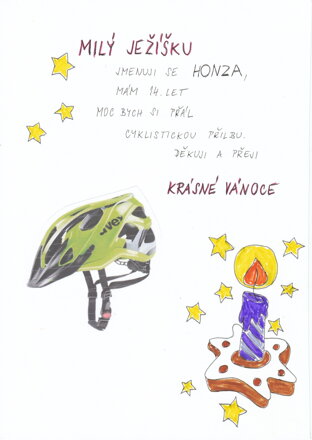 MILÝ JEŽÍŠKU
JMENUJI SE HONZA,
MÁM 14. LET
MOC BYCH SI PŘÁL
CYKLISTICKOU PŘILBU.
DĚKUJI A PŘEJI
KRÁSNÉ VÁNOCE
uvex